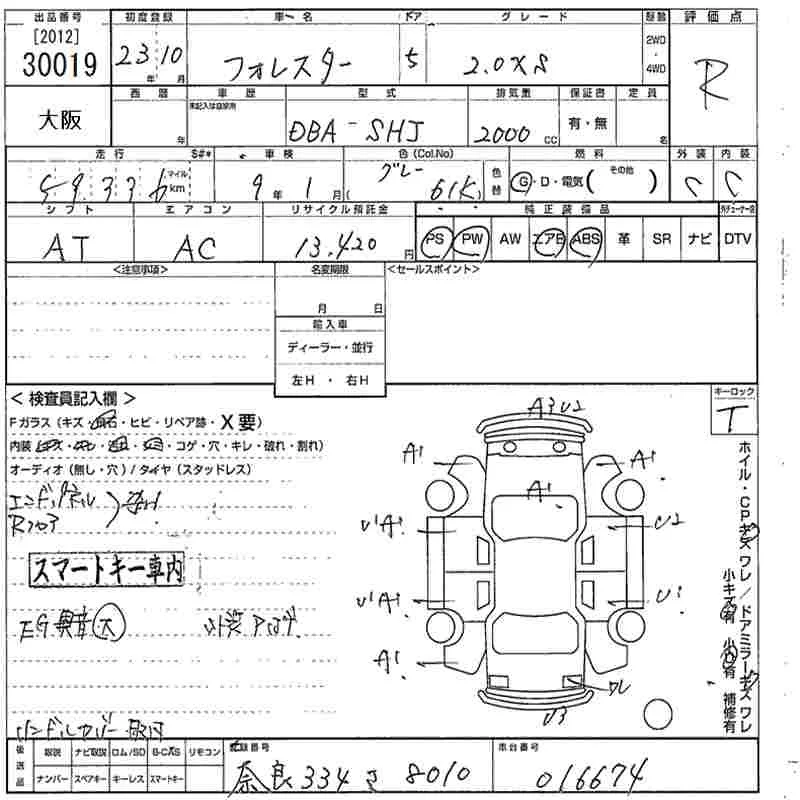 出品番号 初度登録 車名 ドア グレード 駆動 評価点
[2012]
30019 23年 10月 フォレスター 5 2.0XS 2WD・4WD R
大阪
西暦 車歴 型式 排気量 保証書 定員
未記入は自家用
年 DBA-SHJ 2000cc 有・無 名
走行 S#* 車検 色(Col.No) 燃料 外装 内装
59336 マイル km 9年 1月 グレー ( 61K) 色替 G・D・電気( その他 ) C C
シフト エアコン リサイクル預託金 純正装備品
AT AC 13,420円 PS PW AW エアB ABS 革 SR ナビ DTV
<注意事項> 名変期限 <セールスポイント>
月 日
輸入車
ディーラー・並行
左H・右H
<検査員記入欄> キーロック
Fガラス(キズ・飛石・ヒビ・リペア跡・X要) T
内装 コゲ・穴・キレ・破れ・割れ)
オーディオ(無し・穴)/タイヤ(スタッドレス)
エンドパネル
Rフロア
スマートキー車内
EG異音(大)
ハンドルカバー取付
A3U2
A1 A1
A1
U1A1 U2
U1A1 U1
A1
ワレ
U3
ホイル・CPキズワレ/ドアミラーキズワレ
小キズ有 小凹有 補修有
後送品 取説 ナビ取説 ロム/SD B-CAS リモコン 登録番号 車台番号
ナンバー スペアキー キーレス スマートキー 奈良 334 さ 8010 016674